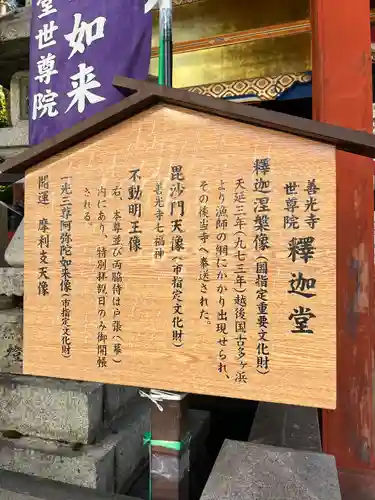 善光寺
世尊院 釋迦堂
釋迦涅槃像(国指定重要文化財)
天延三年(九七三年)越後国古多ヶ浜
より漁師の網にかかり出現せられ、
その後当寺へ奉送された。
毘沙門天像(市指定文化財)
善光寺七福神
不動明王像
右、本尊並び両脇侍は戸張(幕)
内にあり、特別拝観日のみ御開帳
される。
一光三尊阿弥陀如来像(市指定文化財)
開運 摩利支天像
如来
堂
世尊院